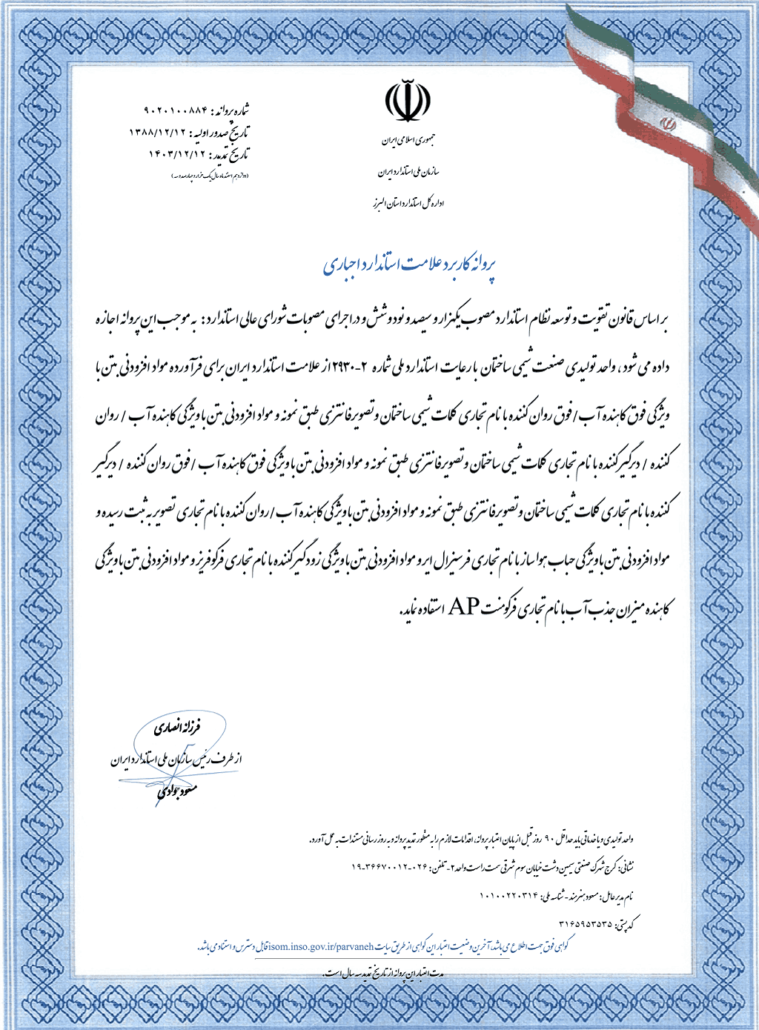 جمهوری اسلامی ایران
سازمان ملی استاندارد ایران
اداره کل استاندارد استان البرز
شماره پروانه : ۹۰۲۰۱۰۰۸۸۴
تاریخ صدور اولیه : ۱۳۸۸/۱۲/۱۲
تاریخ تمدید : ۱۴۰۳/۱۲/۱۲
پروانه کاربرد علامت استاندارد اجباری
بر اساس قانون تقویت و توسعه نظام استاندارد مصوب یکهزار و سیصد و نود و شش و در اجرای مصوبات شورای عالی استاندارد : به موجب این پروانه اجازه
داده می شود ، واحد تولیدی صنعت شیمی ساختمان با رعایت استاندارد ملی شماره ۲-۲۹۳۰ از علامت استاندارد ایران برای فرآورده مواد افزودنی بتن با
ویژگی فوق کاهنده آب / فوق روان کننده با نام تجاری کلمات شیمی ساختمان و تصویر فانتزی طبق نمونه و مواد افزودنی بتن با ویژگی کاهنده آب / روان
کننده / دیرگیر کننده با نام تجاری کلمات شیمی ساختمان و تصویر فانتزی طبق نمونه و مواد افزودنی بتن با ویژگی فوق کاهنده آب / فوق روان کننده / دیرگیر
کننده با نام تجاری کلمات شیمی ساختمان و تصویر فانتزی طبق نمونه و مواد افزودنی بتن با ویژگی کاهنده آب / روان کننده با نام تجاری تصویر به ثبت رسیده و
مواد افزودنی بتن با ویژگی حباب هوا ساز با نام تجاری فرسنرال ایر و مواد افزودنی بتن با ویژگی زودگیر کننده با نام تجاری فرکوفریز و مواد افزودنی بتن با ویژگی
کاهنده میزان جذب آب با نام تجاری فرکومنت AP استفاده نماید.
فرزانه انصاری
از طرف رئیس سازمان ملی استاندارد ایران
مسعود بوادی
واحد تولیدی و یا خدماتی باید حداقل ۹۰ روز قبل از پایان اعتبار پروانه، اقدامات لازم را به منظور تمدید پروانه و به روز رسانی مستندات به عمل آورد.
نشانی: کرج شهرک صنعتی سیمین دشت خیابان سوم شرقی سمت راست واحد ۲ - تلفن: ۰۲۶-۳۶۶۷۰۰۱۲-۱۹
نام مدیر عامل: مسعود هنرمند - شناسه ملی: ۱۰۱۰۰۲۲۰۳۱۴
کد پستی: ۳۱۶۵۹۵۳۵۳۵
گواهی فوق جهت اطلاع می باشد، آخرین وضعیت اعتبار این گواهی از طریق سایت isom.inso.gov.ir/parvaneh قابل دسترس و استناد می باشد.
مدت اعتبار این پروانه از تاریخ تمدید سه سال است.